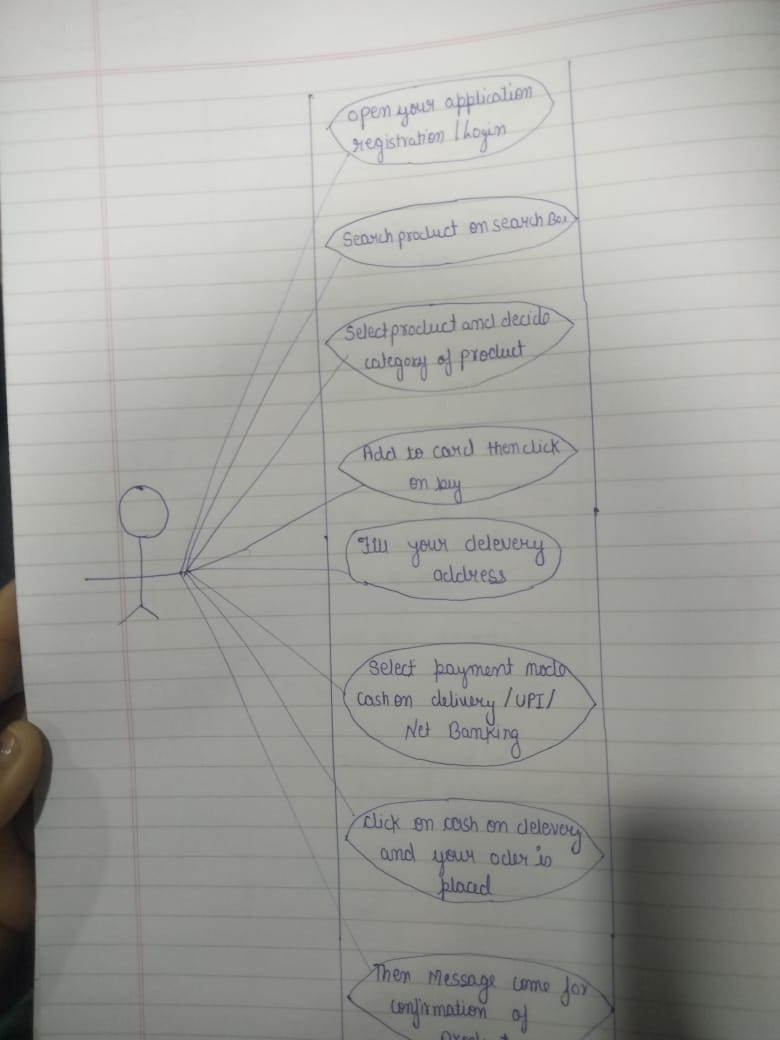 open your application
registration / Login
Search product on search Box
Select product and decide
category of product
Add to card then click
on buy
Fill your delevery
address
Select payment mode
cash on delivery / UPI /
Net Banking
click on cash on delevery
and your oder is
placed
Then Message come for
confirmation of